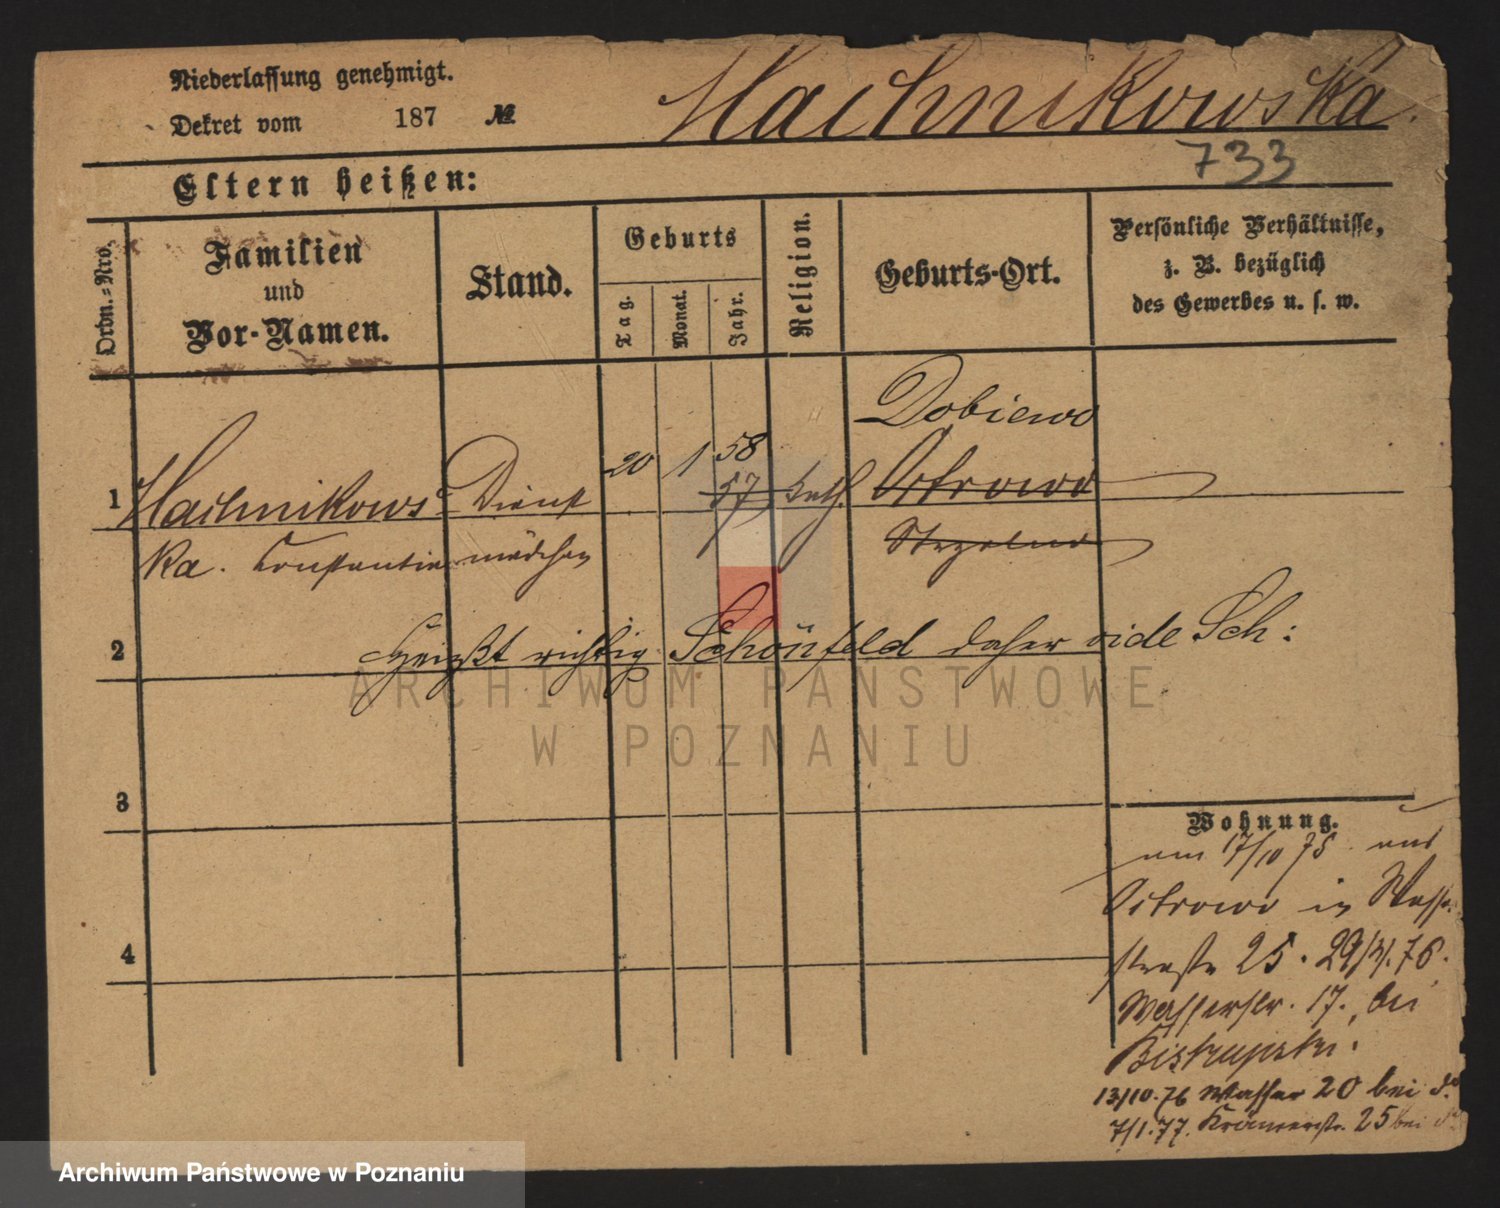 Niederlassung genehmigt.
Dekret vom 187 №
Machnikowska.
733
Eltern heißen:
Ordn.-Nro.
Familien
und
Vor-Namen.
Stand.
Geburts
Tag.
Monat.
Jahr.
Religion.
Geburts-Ort.
Persönliche Verhältnisse,
z. B. bezüglich
des Gewerbes u. s. w.
Dobiewo
1 Machnikows- Dienst 20 1 58 57 kath. Ostrowo
ka. Constantia mädchen Strzelno
2 Heißt richtig Schönfeld daher vide Sch:
ARCHIWUM PAŃSTWOWE
W POZNANIU
3
Wohnung.
am 17/10 75 aus
Ostrowo in Wasser
straße 25. 29/3/.76.
4
Wasserstr. 17., bei
Biskupski.
13/10.76 Wasser 20 bei d.
7/1.77. Krämerstr. 25 bei d.
Archiwum Państwowe w Poznaniu